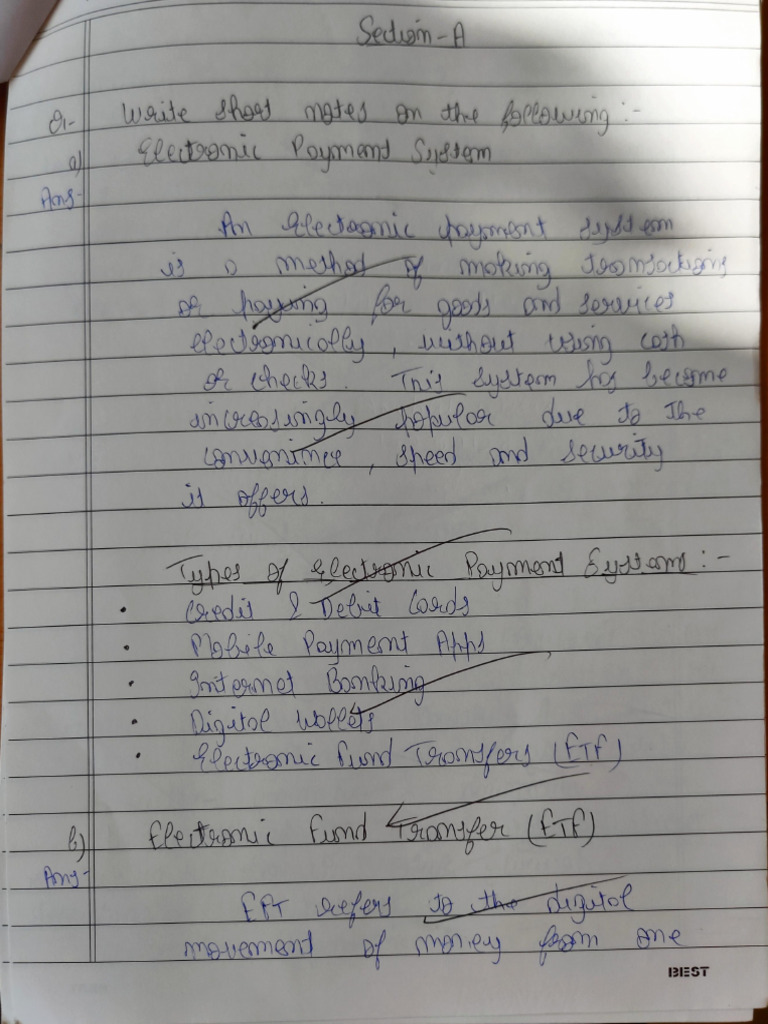 Section-A
Q1- Write short notes on the following :-
a) Electronic Payment System
Ans- An Electronic payment system
is a method of making transactions
or paying for goods and services
electronically, without using cash
or checks. This system has become
increasingly popular due to the
convenience, speed and security
is offers.
Types of Electronic Payment Systems :-
• Credit & Debit Cards
• Mobile Payment Apps
• Internet Banking
• Digital Wallets
• Electronic Fund Transfers (ETF)
b) Electronic Fund Transfer (ETF)
Ans- EFT refers to the digital
movement of money from one
BEST